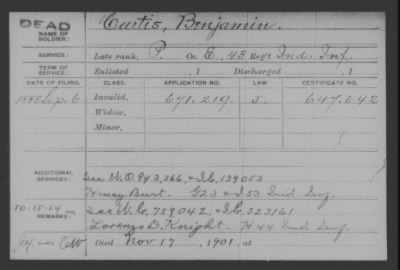 DEAD
NAME OF SOLDIER: Curtis, Benjamin.
SERVICE: Late rank, P. Co. E, 43 Reg't Ind. Inf.
TERM OF SERVICE: Enlisted , 1 Discharged , 1
DATE OF FILING. CLASS. APPLICATION NO. LAW. CERTIFICATE NO.
1888 Sep. 6 Invalid, 671.219. 647.642
Widow,
Minor,
ADDITIONAL SERVICES: See 139053
Henry Burt. G23 & I53 Ind Inf.
10-15-24 REMARKS: See 759042, & I.C. 323161
Lorenzo D. Knight. H 44 Ind Inf.
Died Nov 17, 1901, at